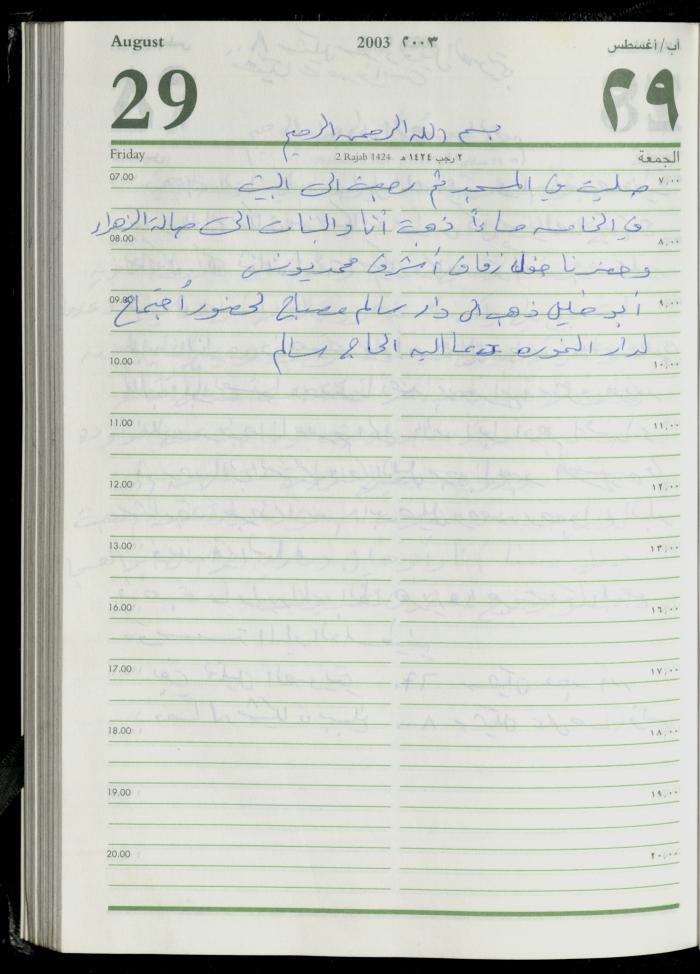 August 2003 ٢٠٠٣ آب/أغسطس
29 ٢٩
بسم الله الرحمن الرحيم
Friday 2 Rajab 1424 ٢ رجب ١٤٢٤ هـ الجمعة
07.00 ٧,٠٠
صليت في المسجد ثم رجعت الى البيت
في الخامسه مساءاً ذهبت أنا والبنات الى صالة الزهراء
08.00 ٨,٠٠
وحضرنا حفلة زفاف أشرف محمد يونس
09.00 ٩,٠٠
أبو خليل ذهب الى دار سالم مصباح لحضور أجتماع
لدار الخوره دعا اليه الحاج سالم
10.00 ١٠,٠٠
11.00 ١١,٠٠
12.00 ١٢,٠٠
13.00 ١٣,٠٠
16.00 ١٦,٠٠
17.00 ١٧,٠٠
18.00 ١٨,٠٠
19.00 ١٩,٠٠
20.00 ٢٠,٠٠